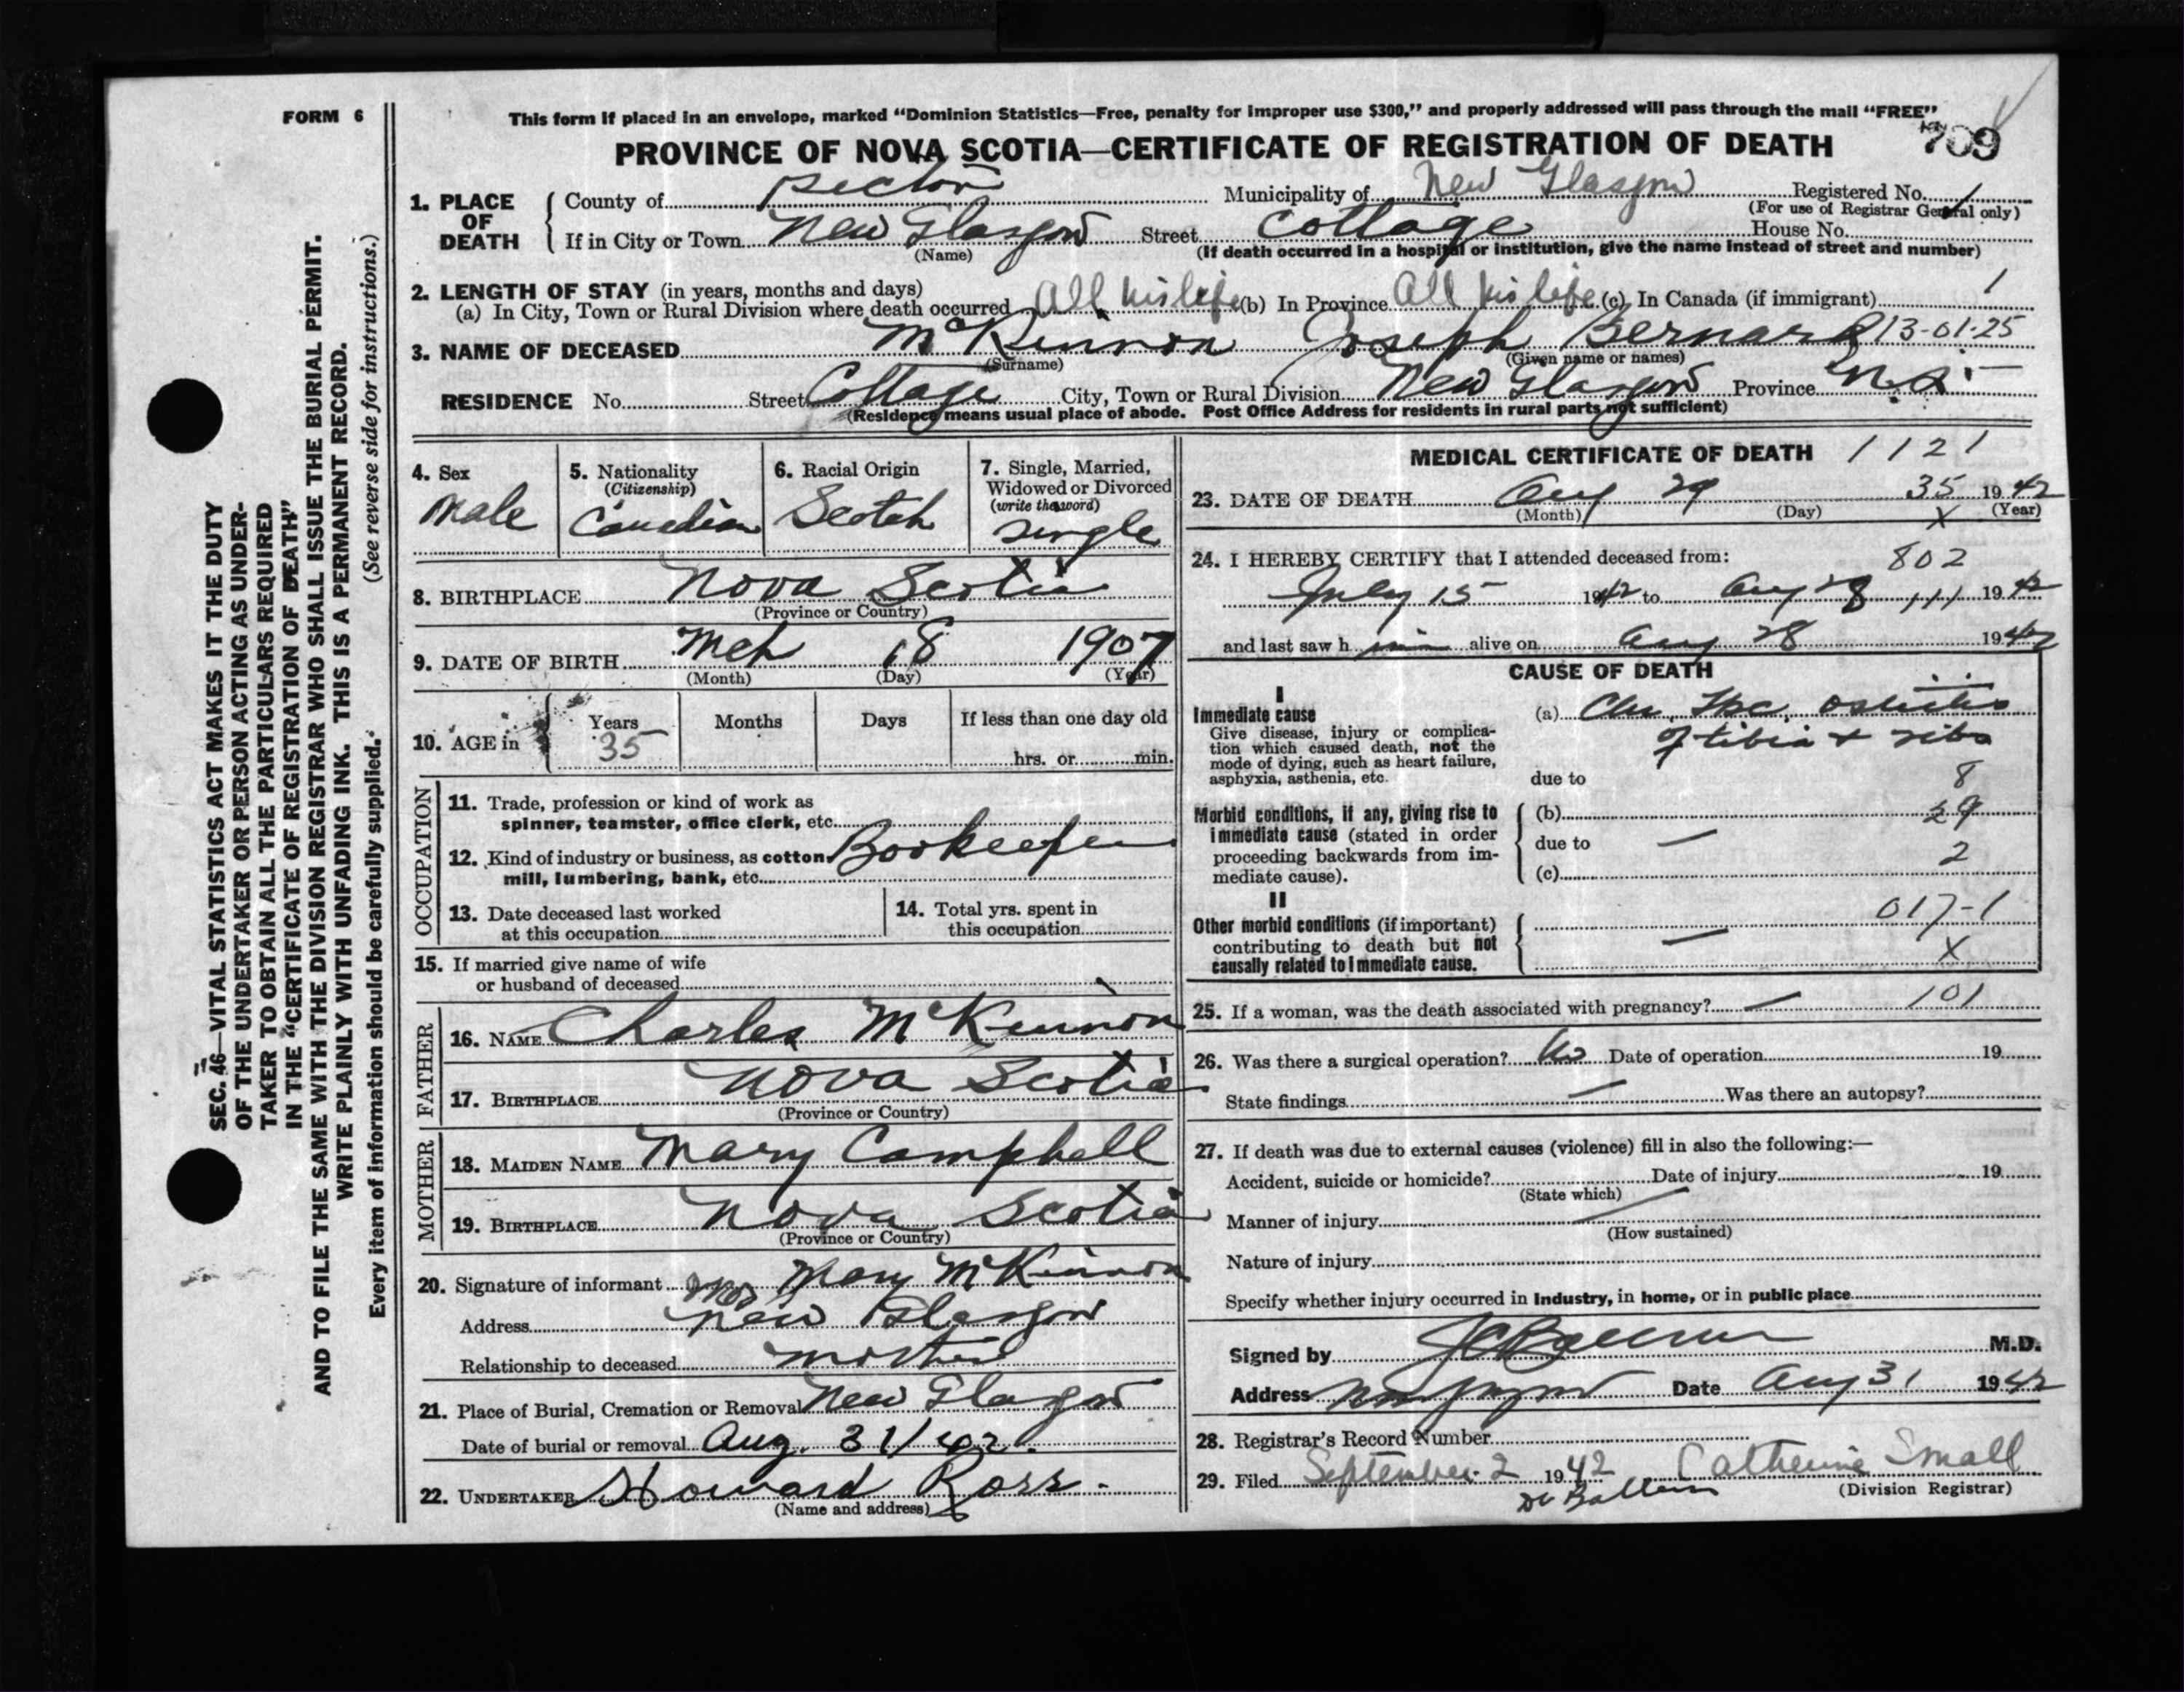 FORM 6
This form if placed in an envelope, marked "Dominion Statistics—Free, penalty for improper use $300," and properly addressed will pass through the mail "FREE"
PROVINCE OF NOVA SCOTIA—CERTIFICATE OF REGISTRATION OF DEATH
709
1. PLACE OF DEATH
County of Pictou Municipality of New Glasgow Registered No.
(For use of Registrar General only)
If in City or Town New Glasgow Street Cottage House No.
(Name) (If death occurred in a hospital or institution, give the name instead of street and number)
2. LENGTH OF STAY (in years, months and days)
(a) In City, Town or Rural Division where death occurred All his life (b) In Province All his life (c) In Canada (if immigrant) 1
3. NAME OF DECEASED McKinnon Joseph Bernard 13-01-25
(Surname) (Given name or names)
RESIDENCE No. Street Cottage City, Town or Rural Division New Glasgow Province N.S.
(Residence means usual place of abode. Post Office Address for residents in rural parts not sufficient)
4. Sex
Male
5. Nationality
(Citizenship)
Canadian
6. Racial Origin
Scotch
7. Single, Married,
Widowed or Divorced
(write the word)
single
8. BIRTHPLACE Nova Scotia
(Province or Country)
9. DATE OF BIRTH Mch 18 1907
(Month) (Day) (Year)
10. AGE in
Years Months Days If less than one day old
35
hrs. or min.
OCCUPATION
11. Trade, profession or kind of work as
spinner, teamster, office clerk, etc.
12. Kind of industry or business, as cotton Bookeeper
mill, lumbering, bank, etc.
13. Date deceased last worked
at this occupation
14. Total yrs. spent in
this occupation
15. If married give name of wife
or husband of deceased
FATHER
16. NAME Charles McKinnon
17. BIRTHPLACE Nova Scotia
(Province or Country)
MOTHER
18. MAIDEN NAME Mary Campbell
19. BIRTHPLACE Nova Scotia
(Province or Country)
20. Signature of informant Mrs Mary McKinnon
Address New Glasgow
Relationship to deceased mother
21. Place of Burial, Cremation or Removal New Glasgow
Date of burial or removal Aug. 31/42.
22. UNDERTAKER Howard Ross.
(Name and address)
MEDICAL CERTIFICATE OF DEATH 1121
23. DATE OF DEATH Aug 29 35 1942
(Month) (Day) X (Year)
24. I HEREBY CERTIFY that I attended deceased from: 802
July 15 1942 to Aug 28 111 1942
and last saw h im alive on Aug 28 1942
CAUSE OF DEATH
I
Immediate cause
Give disease, injury or complica-
tion which caused death, not the
mode of dying, such as heart failure,
asphyxia, asthenia, etc.
(a) Chr. Tbc. osteitis
of tibia + ribs
due to 8
Morbid conditions, if any, giving rise to
immediate cause (stated in order
proceeding backwards from im-
mediate cause).
(b) 29
due to — 2
(c)
II
Other morbid conditions (if important)
contributing to death but not
causally related to immediate cause.
017-1
— X
25. If a woman, was the death associated with pregnancy? — 101
26. Was there a surgical operation? No Date of operation 19
State findings — Was there an autopsy?
27. If death was due to external causes (violence) fill in also the following:—
Accident, suicide or homicide? Date of injury 19
(State which)
Manner of injury
(How sustained)
Nature of injury
Specify whether injury occurred in industry, in home, or in public place
Signed by M.D.
Address Date Aug 31 1942
28. Registrar's Record Number
29. Filed September 2 1942 Catherine Small
(Division Registrar)
SEC. 46—VITAL STATISTICS ACT MAKES IT THE DUTY
OF THE UNDERTAKER OR PERSON ACTING AS UNDER-
TAKER TO OBTAIN ALL THE PARTICULARS REQUIRED
IN THE "CERTIFICATE OF REGISTRATION OF DEATH"
AND TO FILE THE SAME WITH THE DIVISION REGISTRAR WHO SHALL ISSUE THE BURIAL PERMIT.
WRITE PLAINLY WITH UNFADING INK. THIS IS A PERMANENT RECORD.
Every item of information should be carefully supplied. (See reverse side for instructions.)